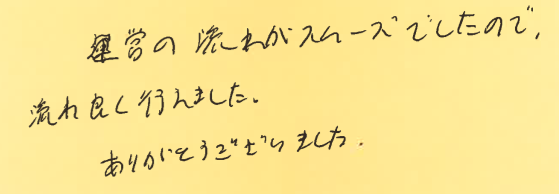 運営の流れがスムーズでしたので、
流れ良く行えました。
ありがとうございました.